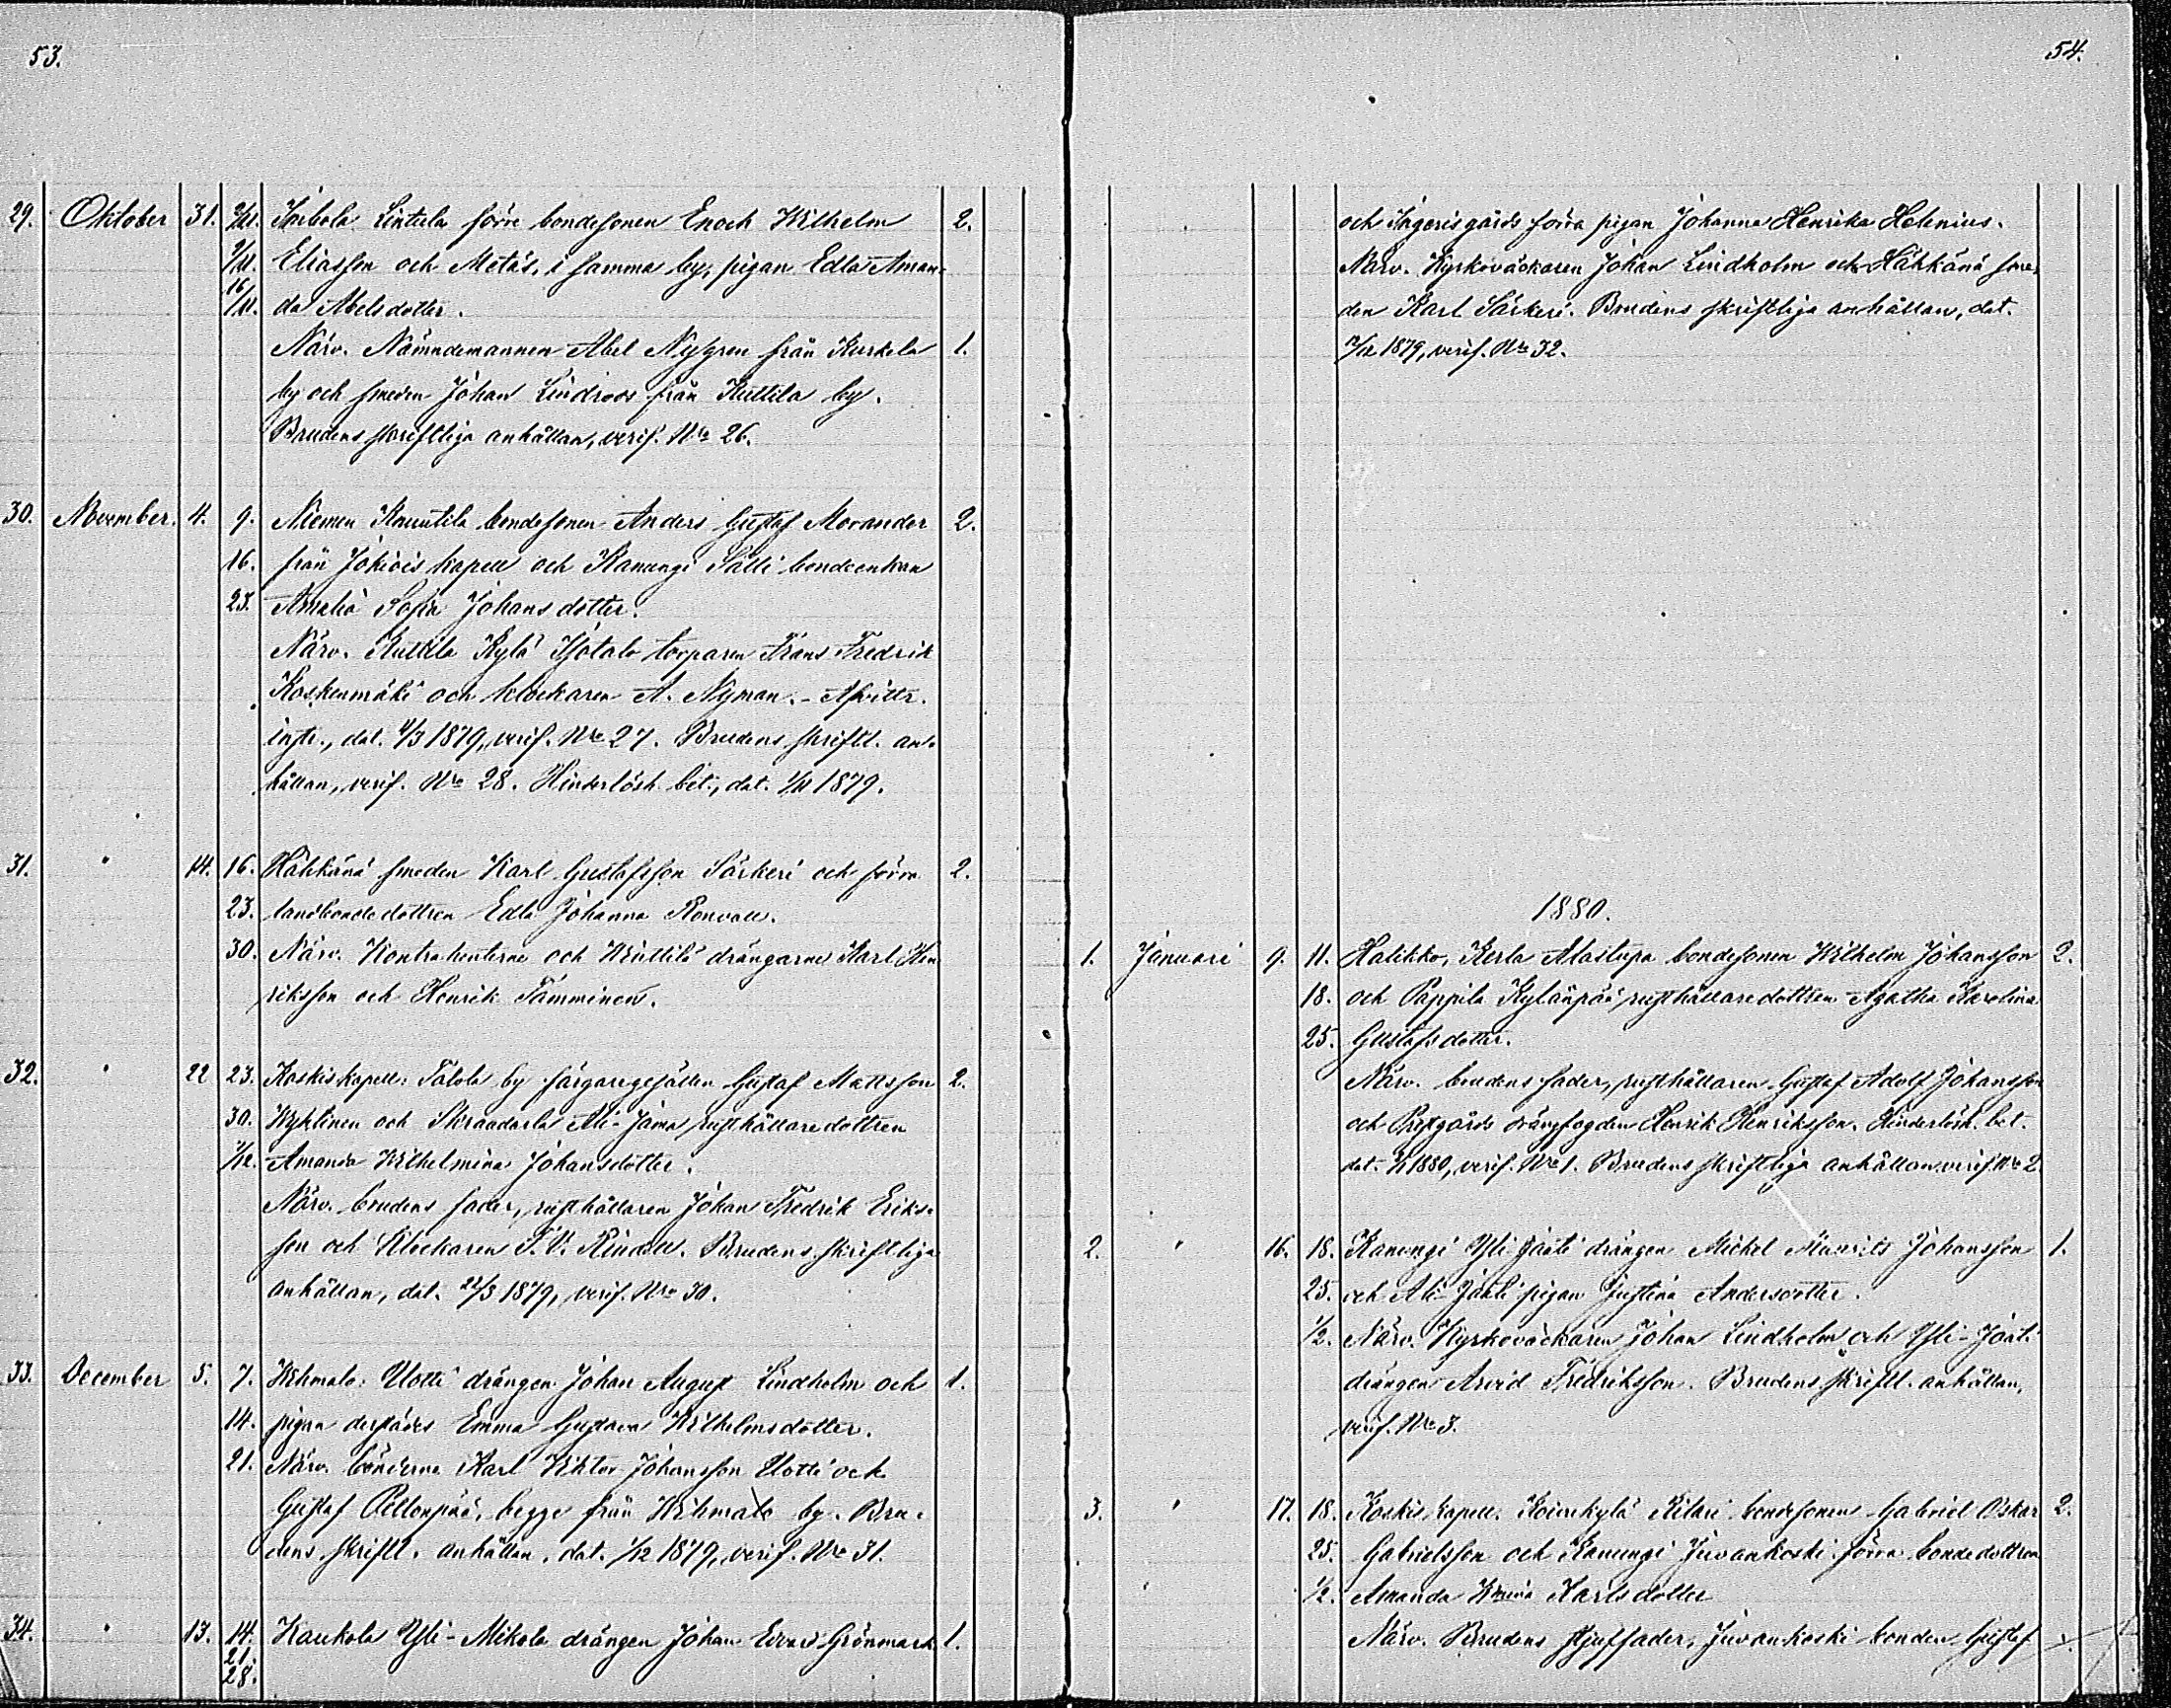 53.
29. Oktober 31. 2/11. Lintula förre bondesonen Enoch Wilhelm 2.
9/11. Eliasson och Metäs, i samma by, pigan Edla Aman-
16/11. da Abelsdotter.
Närv. Nämndemannen Abel Nygren från Kurkela 1.
by och smeden Johan Lindroos från Kuttila by.
Brudens skriftliga anhållan, verif. Nro 26.
30. November. 4. 9. Niemen Knuutila bondesonen Anders Gustaf Morander 2.
16. från Jokiois kapell och Kanungi Sälli bondeenkan
23. Amalia Sofia Johansdotter.
Närv. Kuttila Kylä Isotalo torparen Frans Fredrik
Koskenmäki och klockaren A. Nyman. - Afvittr.
instr., dat. 4/3 1879, verif. Nro 27. Brudens skriftl. an-
hållan, verif. Nro 28. Hinderlösh. bet., dat. 1/11 1879.
31. " 14. 16. Hähkänä smeden Karl Gustafsson Särkeri och förra 2.
23. landbondedottren Edla Johanna Renvall.
30. Närv. Kontrahenterne och drängarne Karl Hen
riksson och Henrik Tamminen.
32. " 22 23. Koskis kapell: Talola by färgaregesällen Gustaf Mattsson 2.
30. och Ali-Jama rusthållaredottren
7/12. Amanda Wilhelmina Johansdotter.
Närv. brudens fader, rusthållaren Johan Fredrik Eriks-
son och Klockaren F. V. Rindell. Brudens skriftliga
anhållan, dat. 22/3 1879, verif. Nro 30.
33. December 5. 7. Wihmalo: Uotti drängen Johan August Lindholm och 1.
14. pigan derstädes Emma Gustava Wilhelmsdotter.
21. Närv. bönderne Karl Viktor Johansson Uotti och
Gustaf Pellonpää, begge från Wihmalo by. Bru-
dens skriftl. anhållan, dat. 1/12 1879, verif. Nro 31.
34. " 13. 14. Kaukola Yli-Mikola drängen Johan Edvard Grönmark 1.
21.
28.
54.
och Ingerisgårds förra pigan Johanna Henrika Helenius.
Närv. Kyrkoväckaren Johan Lindholm och Hähkänä sme-
den Karl Särkeri. Brudens skriftliga anhållan, dat.
12/12 1879, verif. Nro 32.
1880.
1. Januari 9. 11. Halikko, Kerla Alastupa bondesonen Wilhelm Johansson 2.
18. och Pappila Kylänpää rusthållaredottren Agatha Karolina
25. Gustafsdotter.
Närv. brudens fader, rusthållaren Gustaf Adolf Johansson
och Prestgårds drängfogden Henrik Henriksson. Hinderlösh. bet.
dat. 1880, verif. Nro 1. Brudens skriftliga anhållan verif. Nro 2
2. " 16. 18. Kanungi Yli Jaati drängen Michel Maurits Johansson 1.
25. och Ali-Jaati pigan Justina Andersdotter.
1/2. Närv. Kyrkoväckaren Johan Lindholm och Yli-Jaati
drängen Arvid Fredriksson. Brudens skriftl. anhållan,
verif. Nro 3.
3. " 17. 18. Koskis kapell. Koivukylä Kilari bondesonen Gabriel Oskar 2.
25. Gabrielsson och Kanungi Juvankoski förra bondedottren
1/2. Amanda Karlsdotter
Närv. Brudens stjuffader, Juvankoski bonden Gustaf